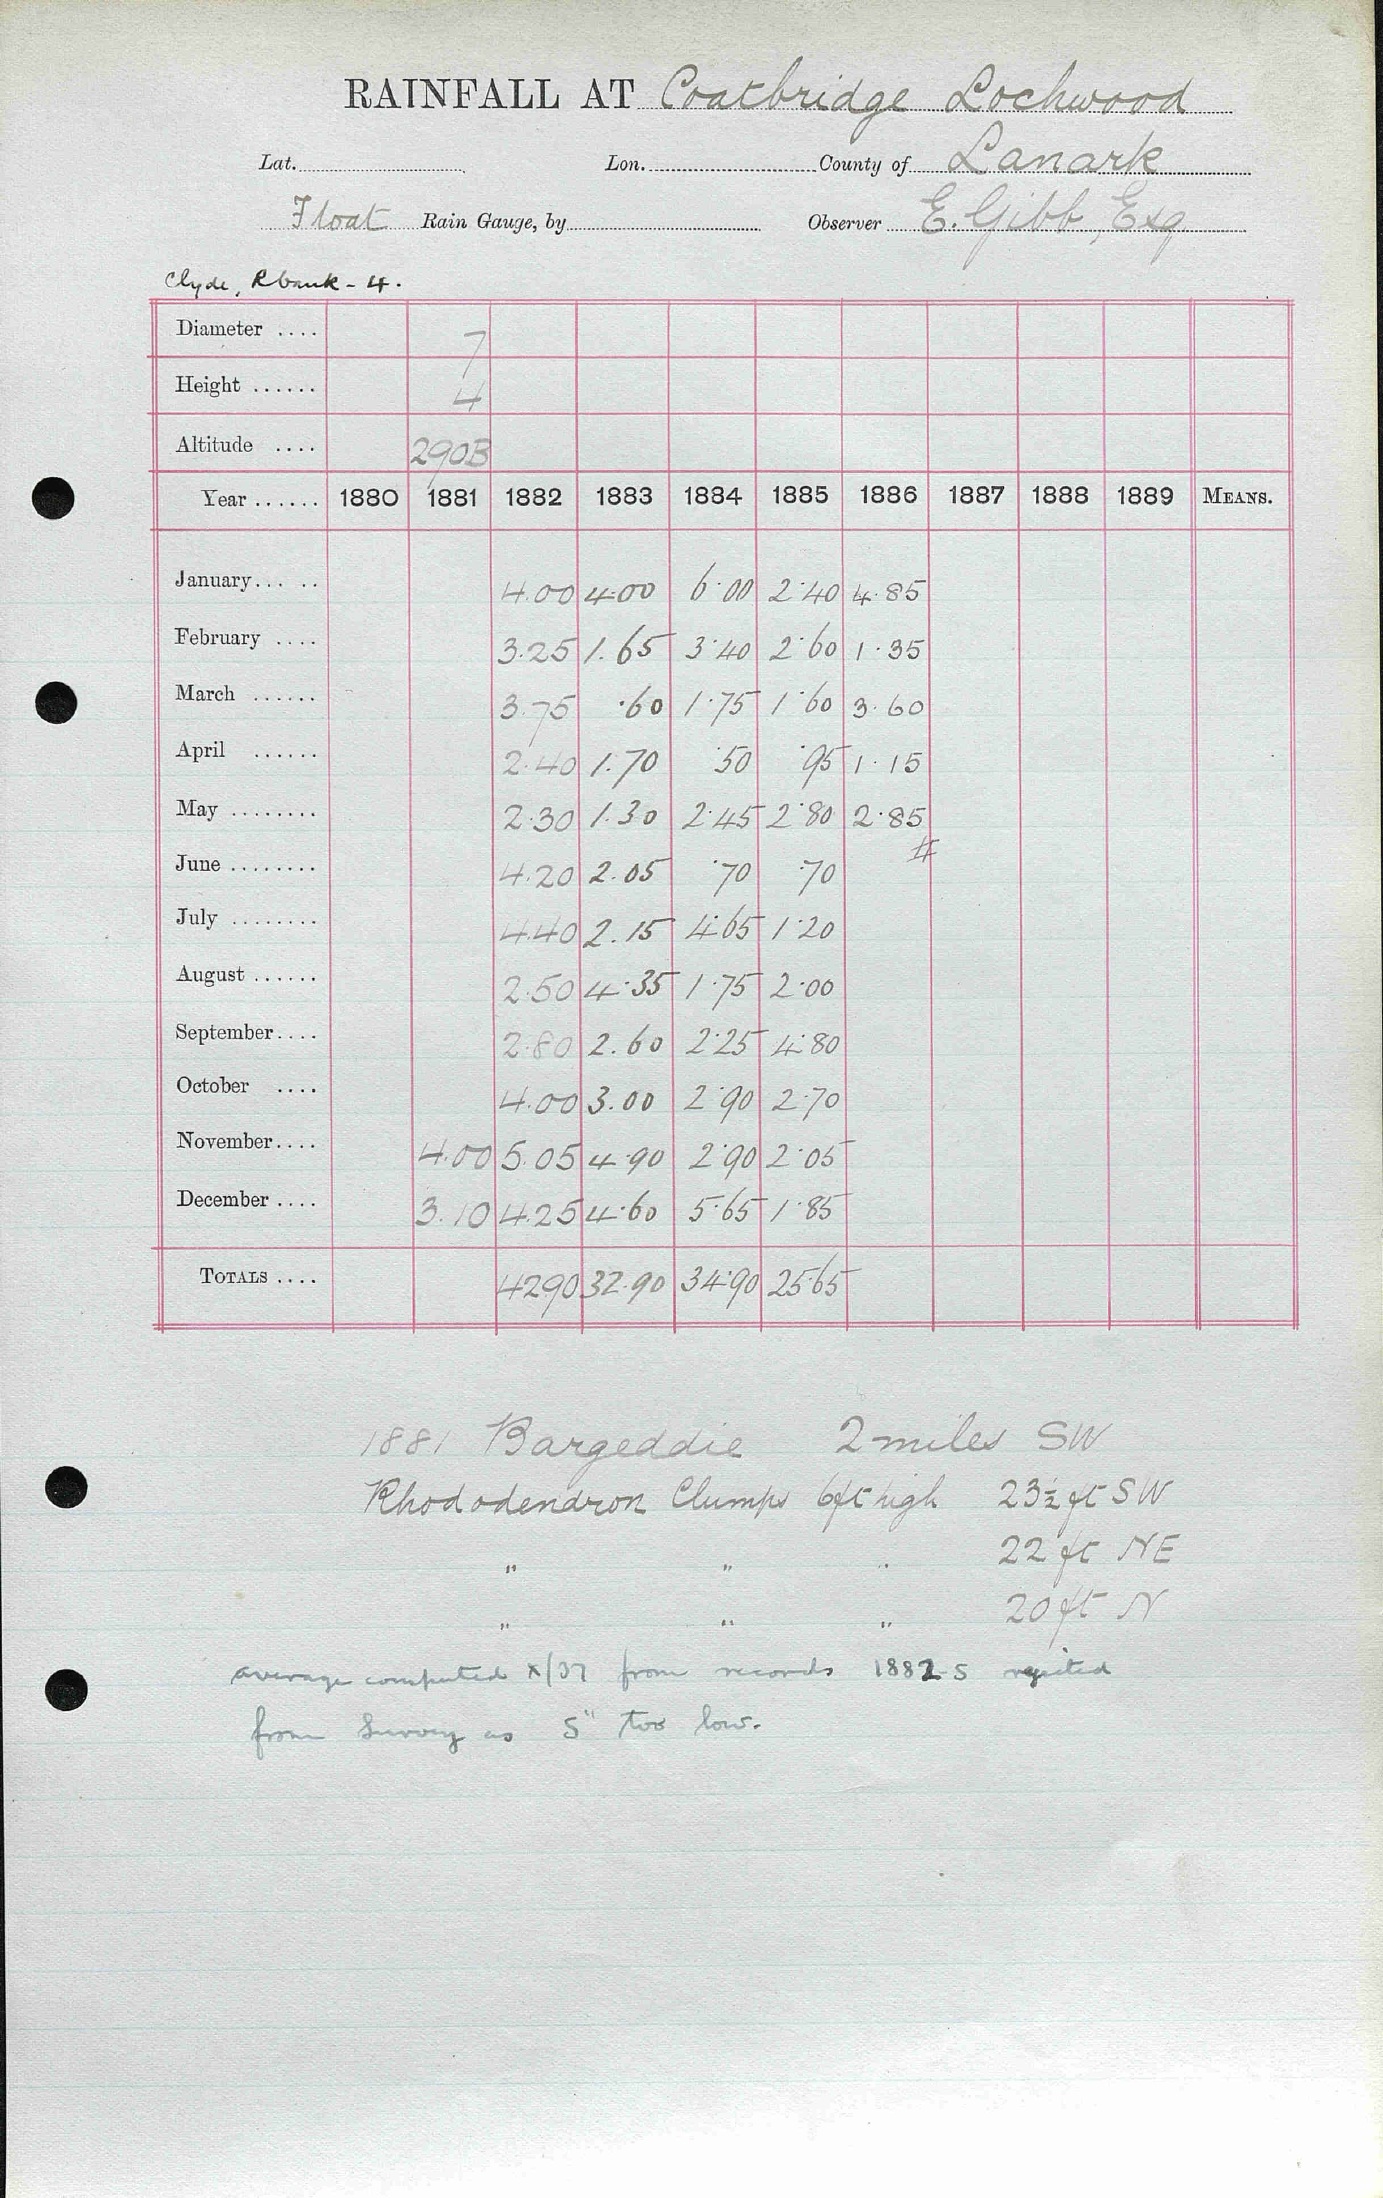 RAINFALL AT Coatbridge Lochwood
Lat. Lon. County of Lanark
Float Rain Gauge, by Observer E. Gibb, Esq
Clyde, Rbank - 4.
Diameter .... 7
Height ...... 4
Altitude .... 290B
Year ...... 1880 1881 1882 1883 1884 1885 1886 1887 1888 1889 MEANS.
January... .. 4.00 4.00 6.00 2.40 4.85
February .... 3.25 1.65 3.40 2.60 1.35
March ...... 3.75 .60 1.75 1.60 3.60
April ...... 2.40 1.70 .50 .95 1.15
May ........ 2.30 1.30 2.45 2.80 2.85
June ........ 4.20 2.05 .70 .70 #
July ........ 4.40 2.15 4.65 1.20
August ...... 2.50 4.35 1.75 2.00
September.... 2.80 2.60 2.25 4.80
October .... 4.00 3.00 2.90 2.70
November.... 4.00 5.05 4.90 2.90 2.05
December .... 3.10 4.25 4.60 5.65 1.85
TOTALS .... 4290 32.90 34.90 25.65
1881 Bargeddie 2 miles SW
Rhododendron Clumps 6ft high 23½ ft SW
" " " 22 ft NE
" " " 20 ft N
average computed x/37 from records 1882-5 rejected
from Survey as 5" too low.